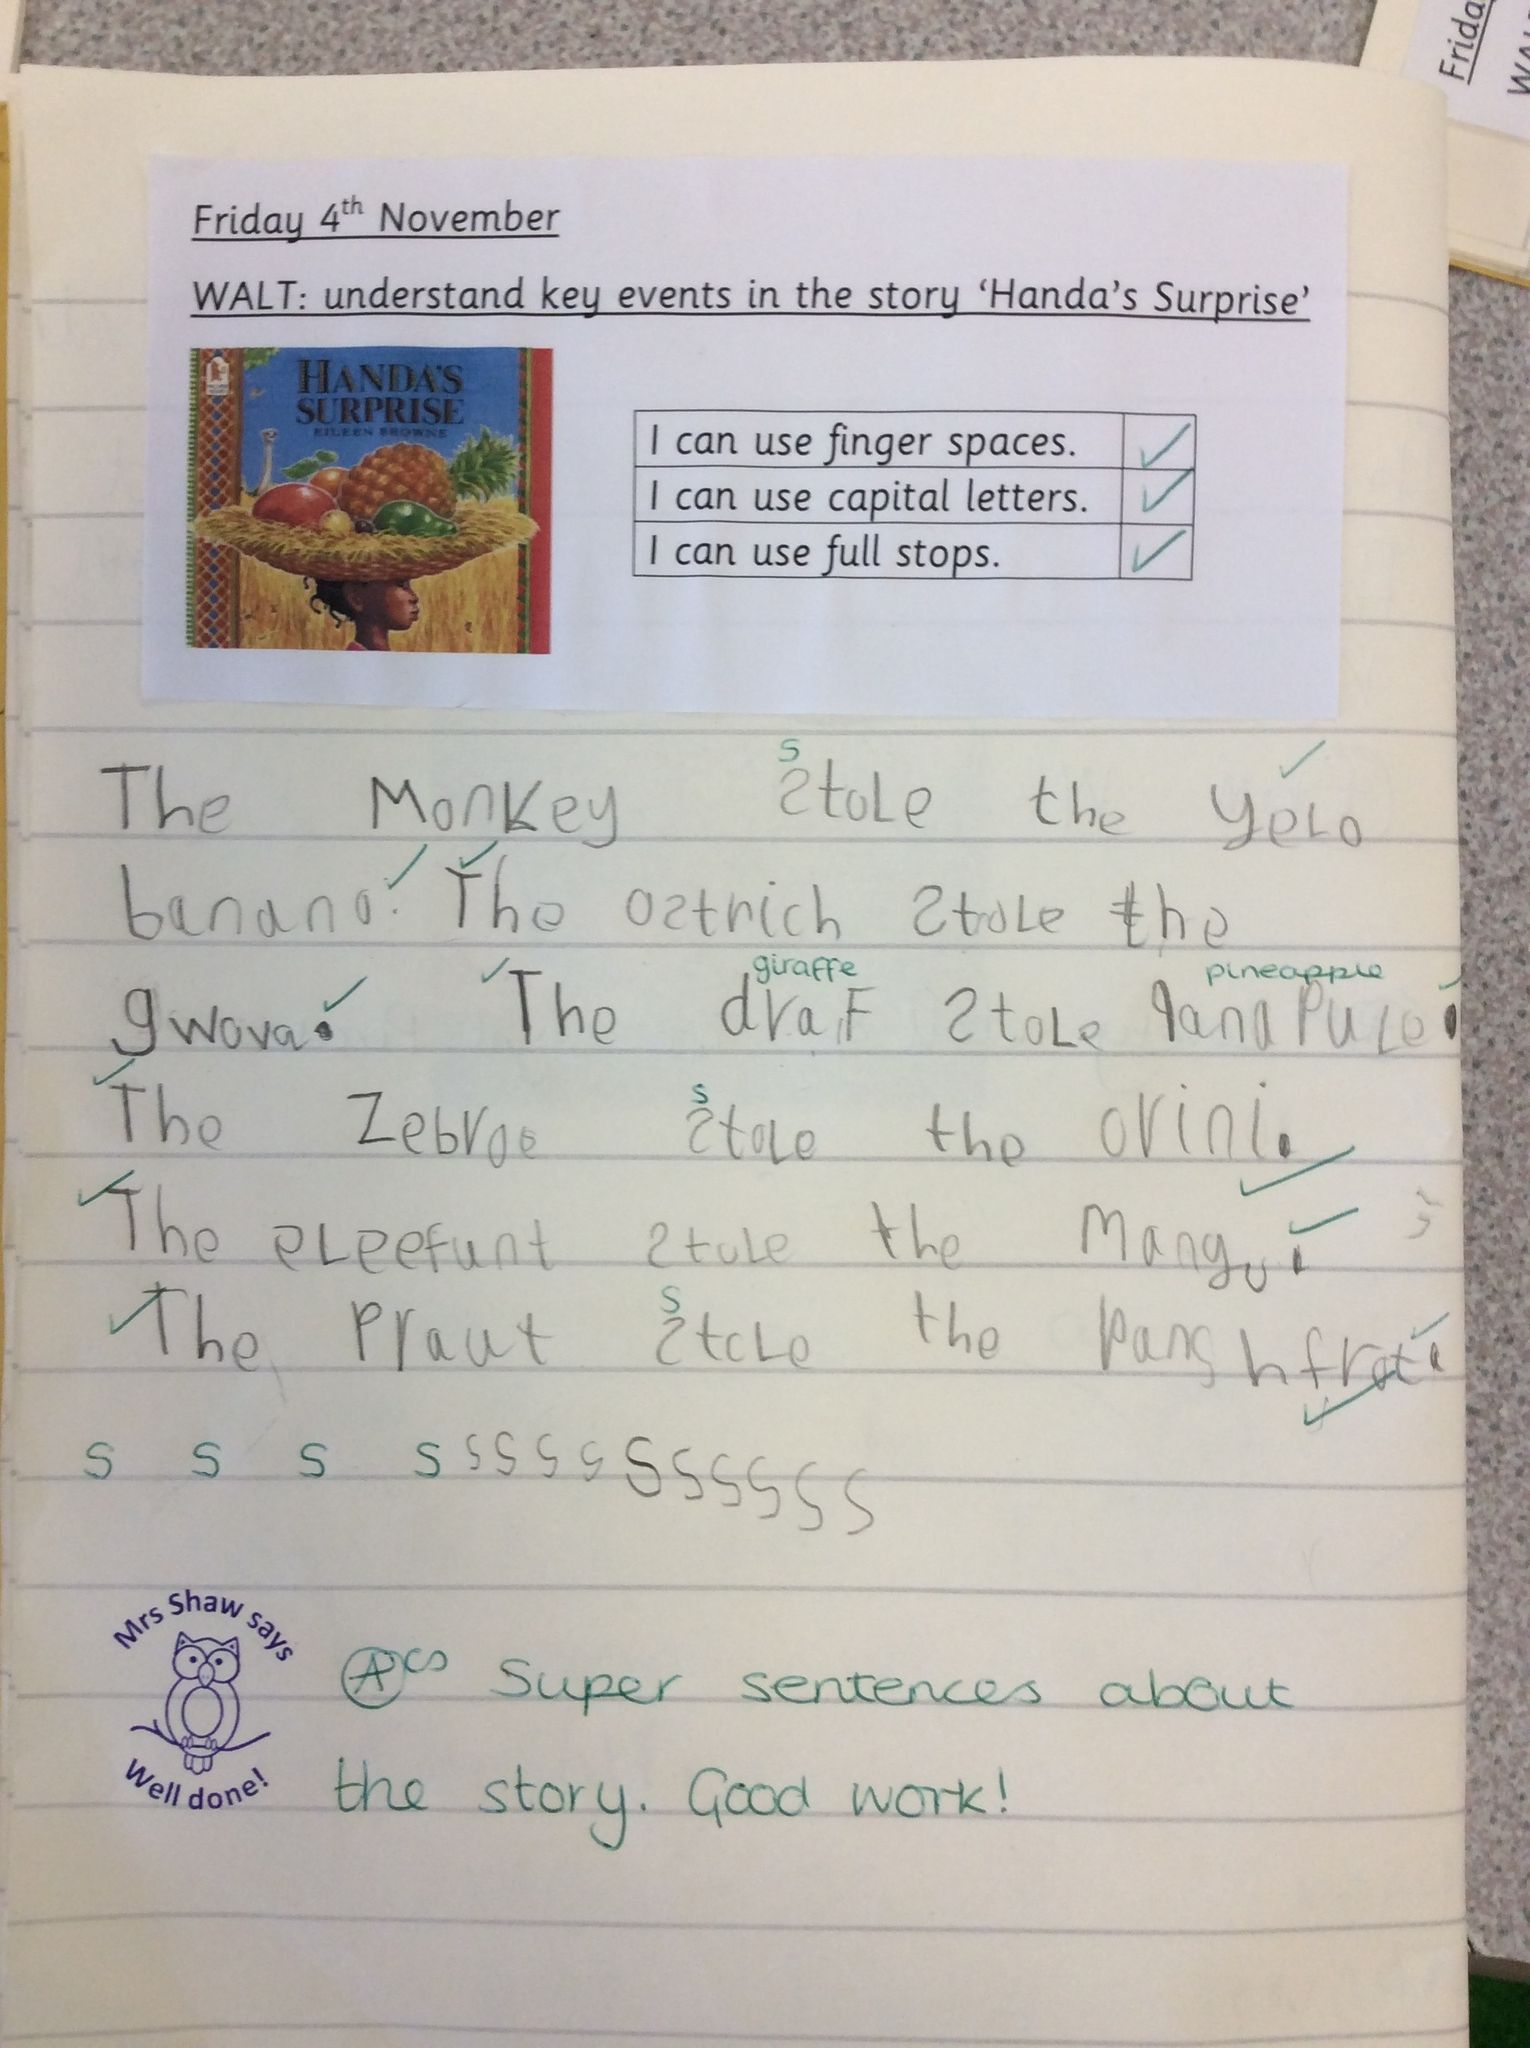 Frida
WAL
Friday 4th November
WALT: understand key events in the story 'Handa's Surprise'
HANDA'S
SURPRISE
EILEEN BROWNE
I can use finger spaces. ✓
I can use capital letters. ✓
I can use full stops. ✓
s
The Monkey stole the yelo
banana. The ostrich stole the
giraffe pineapple
gwova. The draf stole
s
The Zebroe stole the orini.
The eleefunt stole the Mango.
s
The Praut stole the
s s s s s s s s s s s s s s
Mrs Shaw says
Well done!
A cs Super sentences about
the story. Good work!